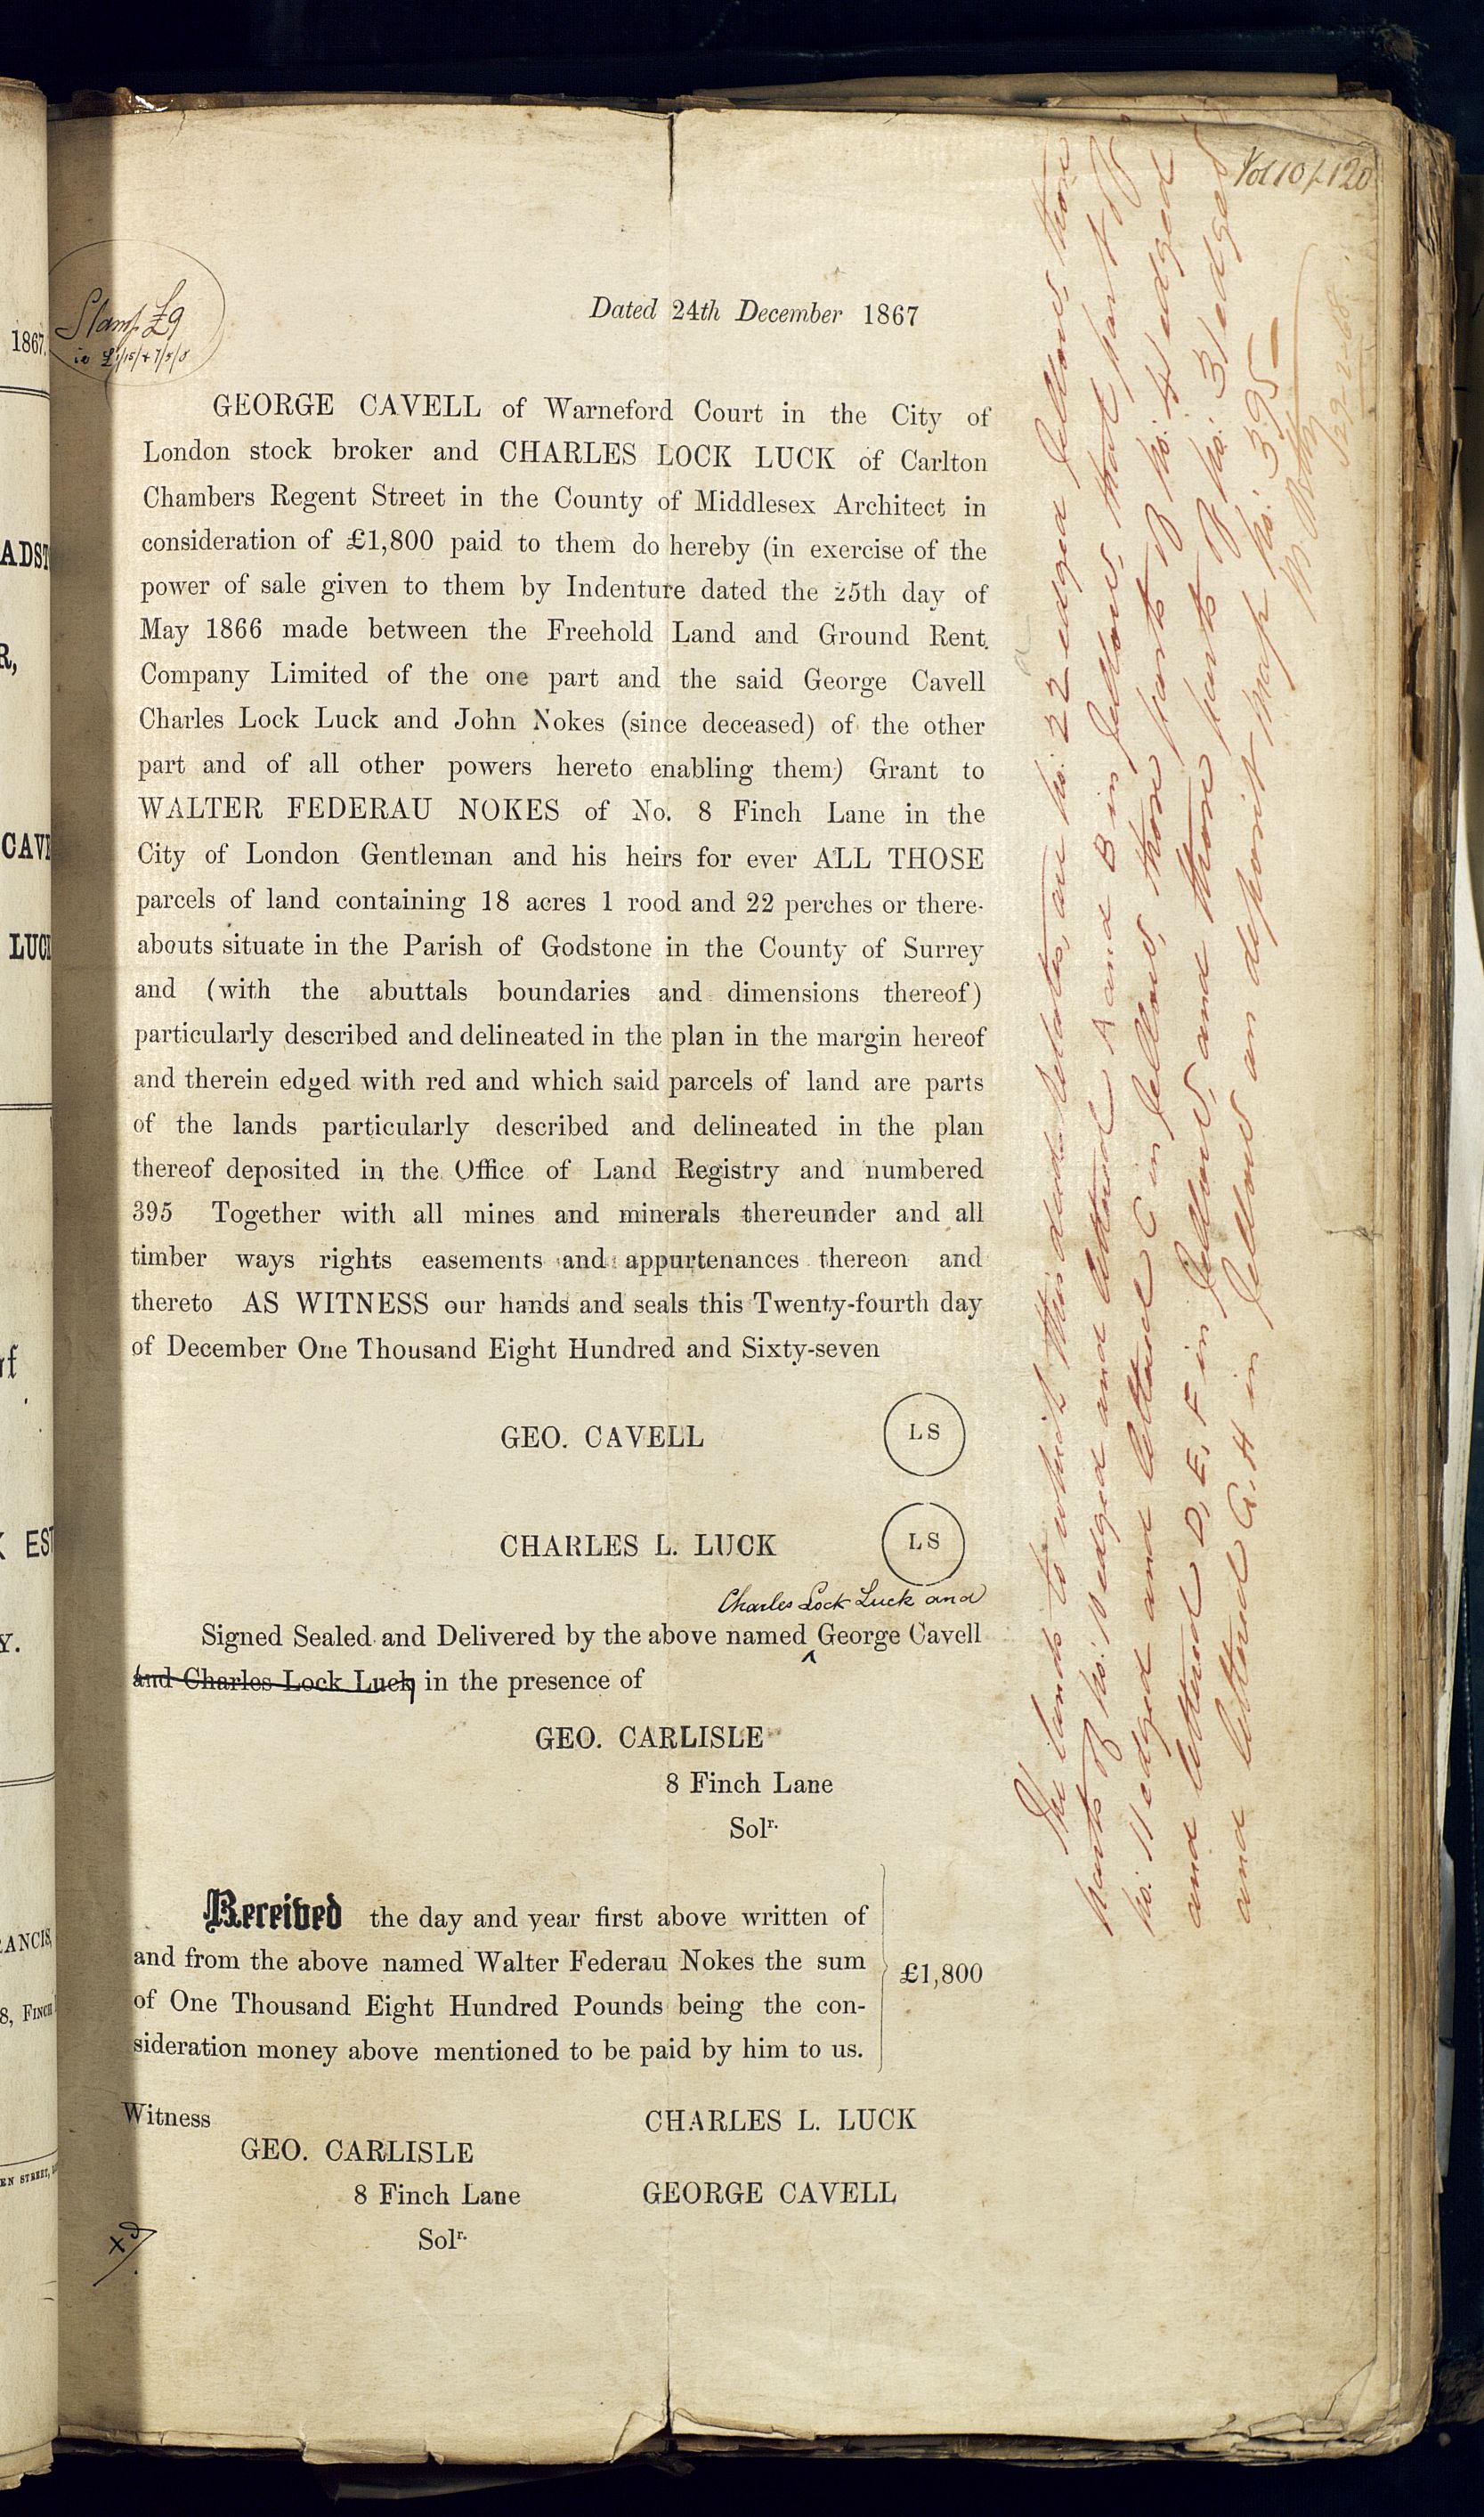 Vol 10 / 120
Stamp £9
ie £1/15/+ 7/5/0
Dated 24th December 1867
GEORGE CAVELL of Warneford Court in the City of
London stock broker and CHARLES LOCK LUCK of Carlton
Chambers Regent Street in the County of Middlesex Architect in
consideration of £1,800 paid to them do hereby (in exercise of the
power of sale given to them by Indenture dated the 25th day of
May 1866 made between the Freehold Land and Ground Rent
Company Limited of the one part and the said George Cavell
Charles Lock Luck and John Nokes (since deceased) of the other
part and of all other powers hereto enabling them) Grant to
WALTER FEDERAU NOKES of No. 8 Finch Lane in the
City of London Gentleman and his heirs for ever ALL THOSE
parcels of land containing 18 acres 1 rood and 22 perches or there-
abouts situate in the Parish of Godstone in the County of Surrey
and (with the abuttals boundaries and dimensions thereof)
particularly described and delineated in the plan in the margin hereof
and therein edged with red and which said parcels of land are parts
of the lands particularly described and delineated in the plan
thereof deposited in the Office of Land Registry and numbered
395 Together with all mines and minerals thereunder and all
timber ways rights easements and appurtenances thereon and
thereto AS WITNESS our hands and seals this Twenty-fourth day
of December One Thousand Eight Hundred and Sixty-seven
GEO. CAVELL L S
CHARLES L. LUCK L S
Charles Lock Luck and
Signed Sealed and Delivered by the above named ^ George Cavell
and Charles Lock Luck in the presence of
GEO. CARLISLE
8 Finch Lane
Solr.
Received the day and year first above written of
and from the above named Walter Federau Nokes the sum
of One Thousand Eight Hundred Pounds being the con-
sideration money above mentioned to be paid by him to us.
£1,800
Witness
GEO. CARLISLE
8 Finch Lane
Solr.
CHARLES L. LUCK
GEORGE CAVELL
xd
The lands to which this deed relates, are No. 22 edged Yellow, those
parts of No. 10 edged and lettered A and B in Yellow, that part of
No. 11 edged and lettered C in Yellow, those parts of No. 4 edged
and lettered D, E, F in Yellow, and those parts of No. 31 edged
and lettered G. H in Yellow on deposit Map No. 395
29-2-68
1867.
ADST
R,
CAVE
LUCK
of
K EST
Y.
RANCIS,
8, FINCH
EN STREET,